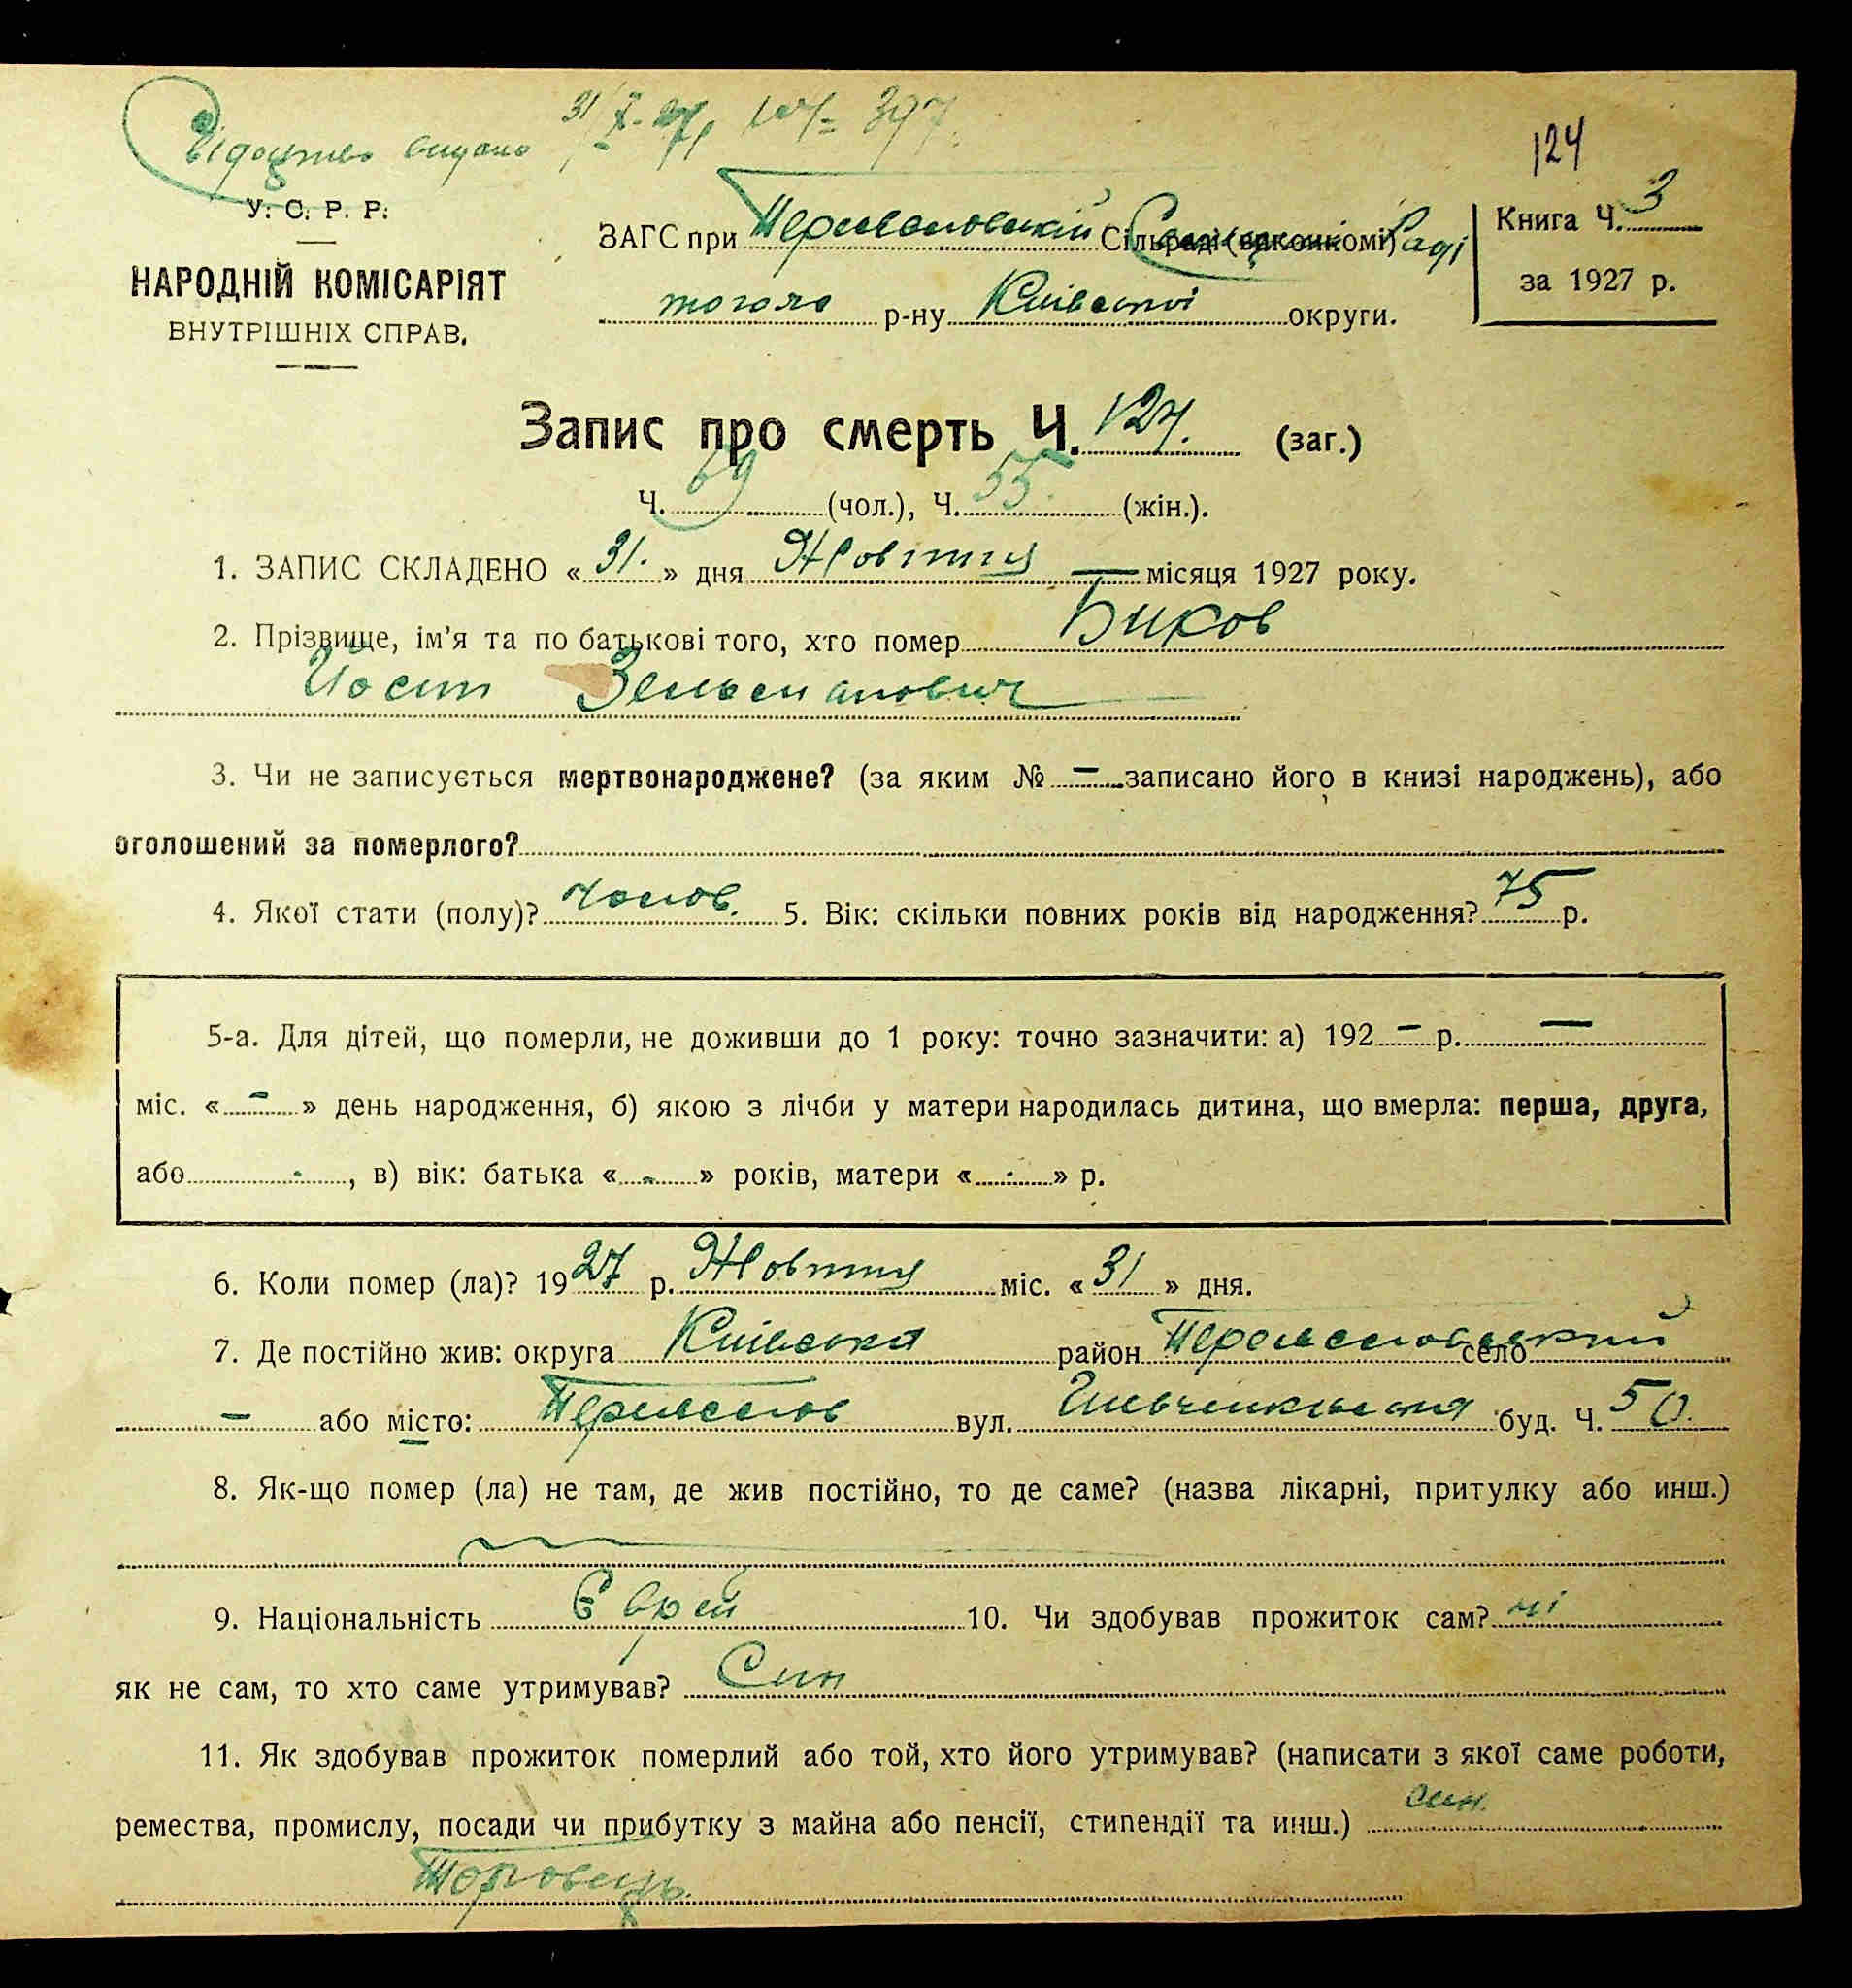 Відоцтво видано 31/X-27, № 397.
124
У. С. Р. Р.
НАРОДНІЙ КОМІСАРІЯТ
ВНУТРІШНІХ СПРАВ.
ЗАГС при Сільраді (виконкомі) Раді
тогож р-ну Київської округи.
Книга Ч. 3
за 1927 р.
Запис про смерть Ч. 124. (заг.)
Ч. 69 (чол.), Ч. 55 (жін.).
1. ЗАПИС СКЛАДЕНО «31.» дня Жовтня — місяця 1927 року.
2. Прізвище, ім'я та по батькові того, хто помер Биков
Йосип Зельманович
3. Чи не записується мертвонароджене? (за яким № — записано його в книзі народжень), або
оголошений за померлого?
4. Якої стати (полу)? Чолов. 5. Вік: скільки повних років від народження? 75 р.
5-а. Для дітей, що померли, не доживши до 1 року: точно зазначити: а) 192 — р. —
міс. « — » день народження, б) якою з лічби у матери народилась дитина, що вмерла: перша, друга,
або - , в) вік: батька « - » років, матери « - » р.
6. Коли помер (ла)? 1927 р. Жовтня міс. «31» дня.
7. Де постійно жив: округа Київська район Переяславський село
— або місто: Переяслов вул. Шевченківська буд. Ч. 50.
8. Як-що помер (ла) не там, де жив постійно, то де саме? (назва лікарні, притулку або инш.)
9. Національність Єврей 10. Чи здобував прожиток сам? ні
як не сам, то хто саме утримував? Син
11. Як здобував прожиток померлий або той, хто його утримував? (написати з якої саме роботи,
ремества, промислу, посади чи прибутку з майна або пенсії, стипендії та инш.) син.
Торговець.